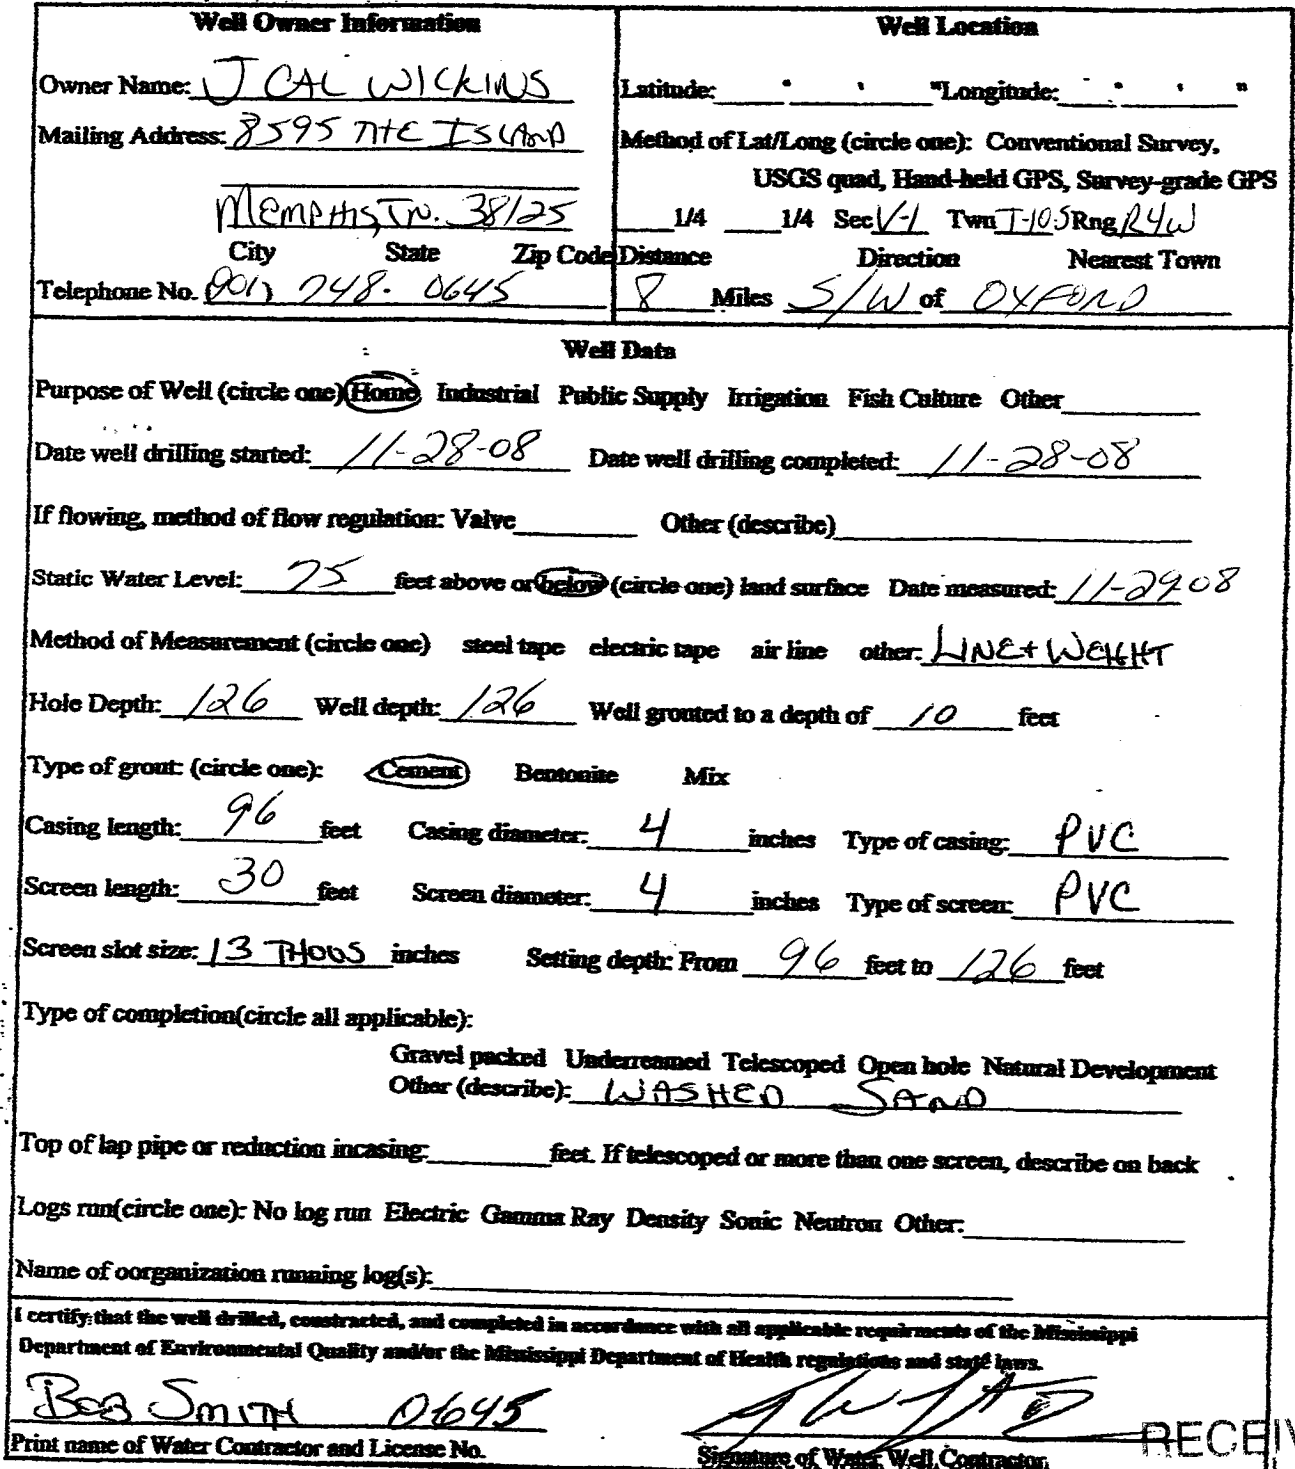 Well Owner Information
Well Location
Owner Name: J CAL WICKINS
Latitude: ° ' "Longitude: ° ' "
Mailing Address: 8595 THE ISLAND
Method of Lat/Long (circle one): Conventional Survey,
USGS quad, Hand-held GPS, Survey-grade GPS
MEMPHIS, TN. 38125
1/4 1/4 Sec V-1 Twn T-10-S Rng R4W
City State Zip Code
Distance Direction Nearest Town
Telephone No. (901) 748-0645
8 Miles S/W of OXFORD
Well Data
Purpose of Well (circle one) Home Industrial Public Supply Irrigation Fish Culture Other
Date well drilling started: 11-28-08 Date well drilling completed: 11-28-08
If flowing, method of flow regulation: Valve Other (describe)
Static Water Level: 75 feet above or below (circle one) land surface Date measured: 11-29-08
Method of Measurement (circle one) steel tape electric tape air line other: LINE + WEIGHT
Hole Depth: 126 Well depth: 126 Well grouted to a depth of 10 feet
Type of grout: (circle one): Cement Bentonite Mix
Casing length: 96 feet Casing diameter: 4 inches Type of casing: PVC
Screen length: 30 feet Screen diameter: 4 inches Type of screen: PVC
Screen slot size: 13 THOUS inches Setting depth: From 96 feet to 126 feet
Type of completion(circle all applicable):
Gravel packed Underreamed Telescoped Open hole Natural Development
Other (describe): WASHED SAND
Top of lap pipe or reduction incasing: feet. If telescoped or more than one screen, describe on back
Logs run(circle one): No log run Electric Gamma Ray Density Sonic Neutron Other:
Name of oorganization running log(s):
I certify that the well drilled, constracted, and completed in accordance with all applicable requirments of the Mississippi
Department of Environmental Quality and/or the Mississippi Department of Health regulations and state laws.
BOB SMITH 0645
Print name of Water Contractor and License No.
Signature of Water Well Contractor
RECEIV